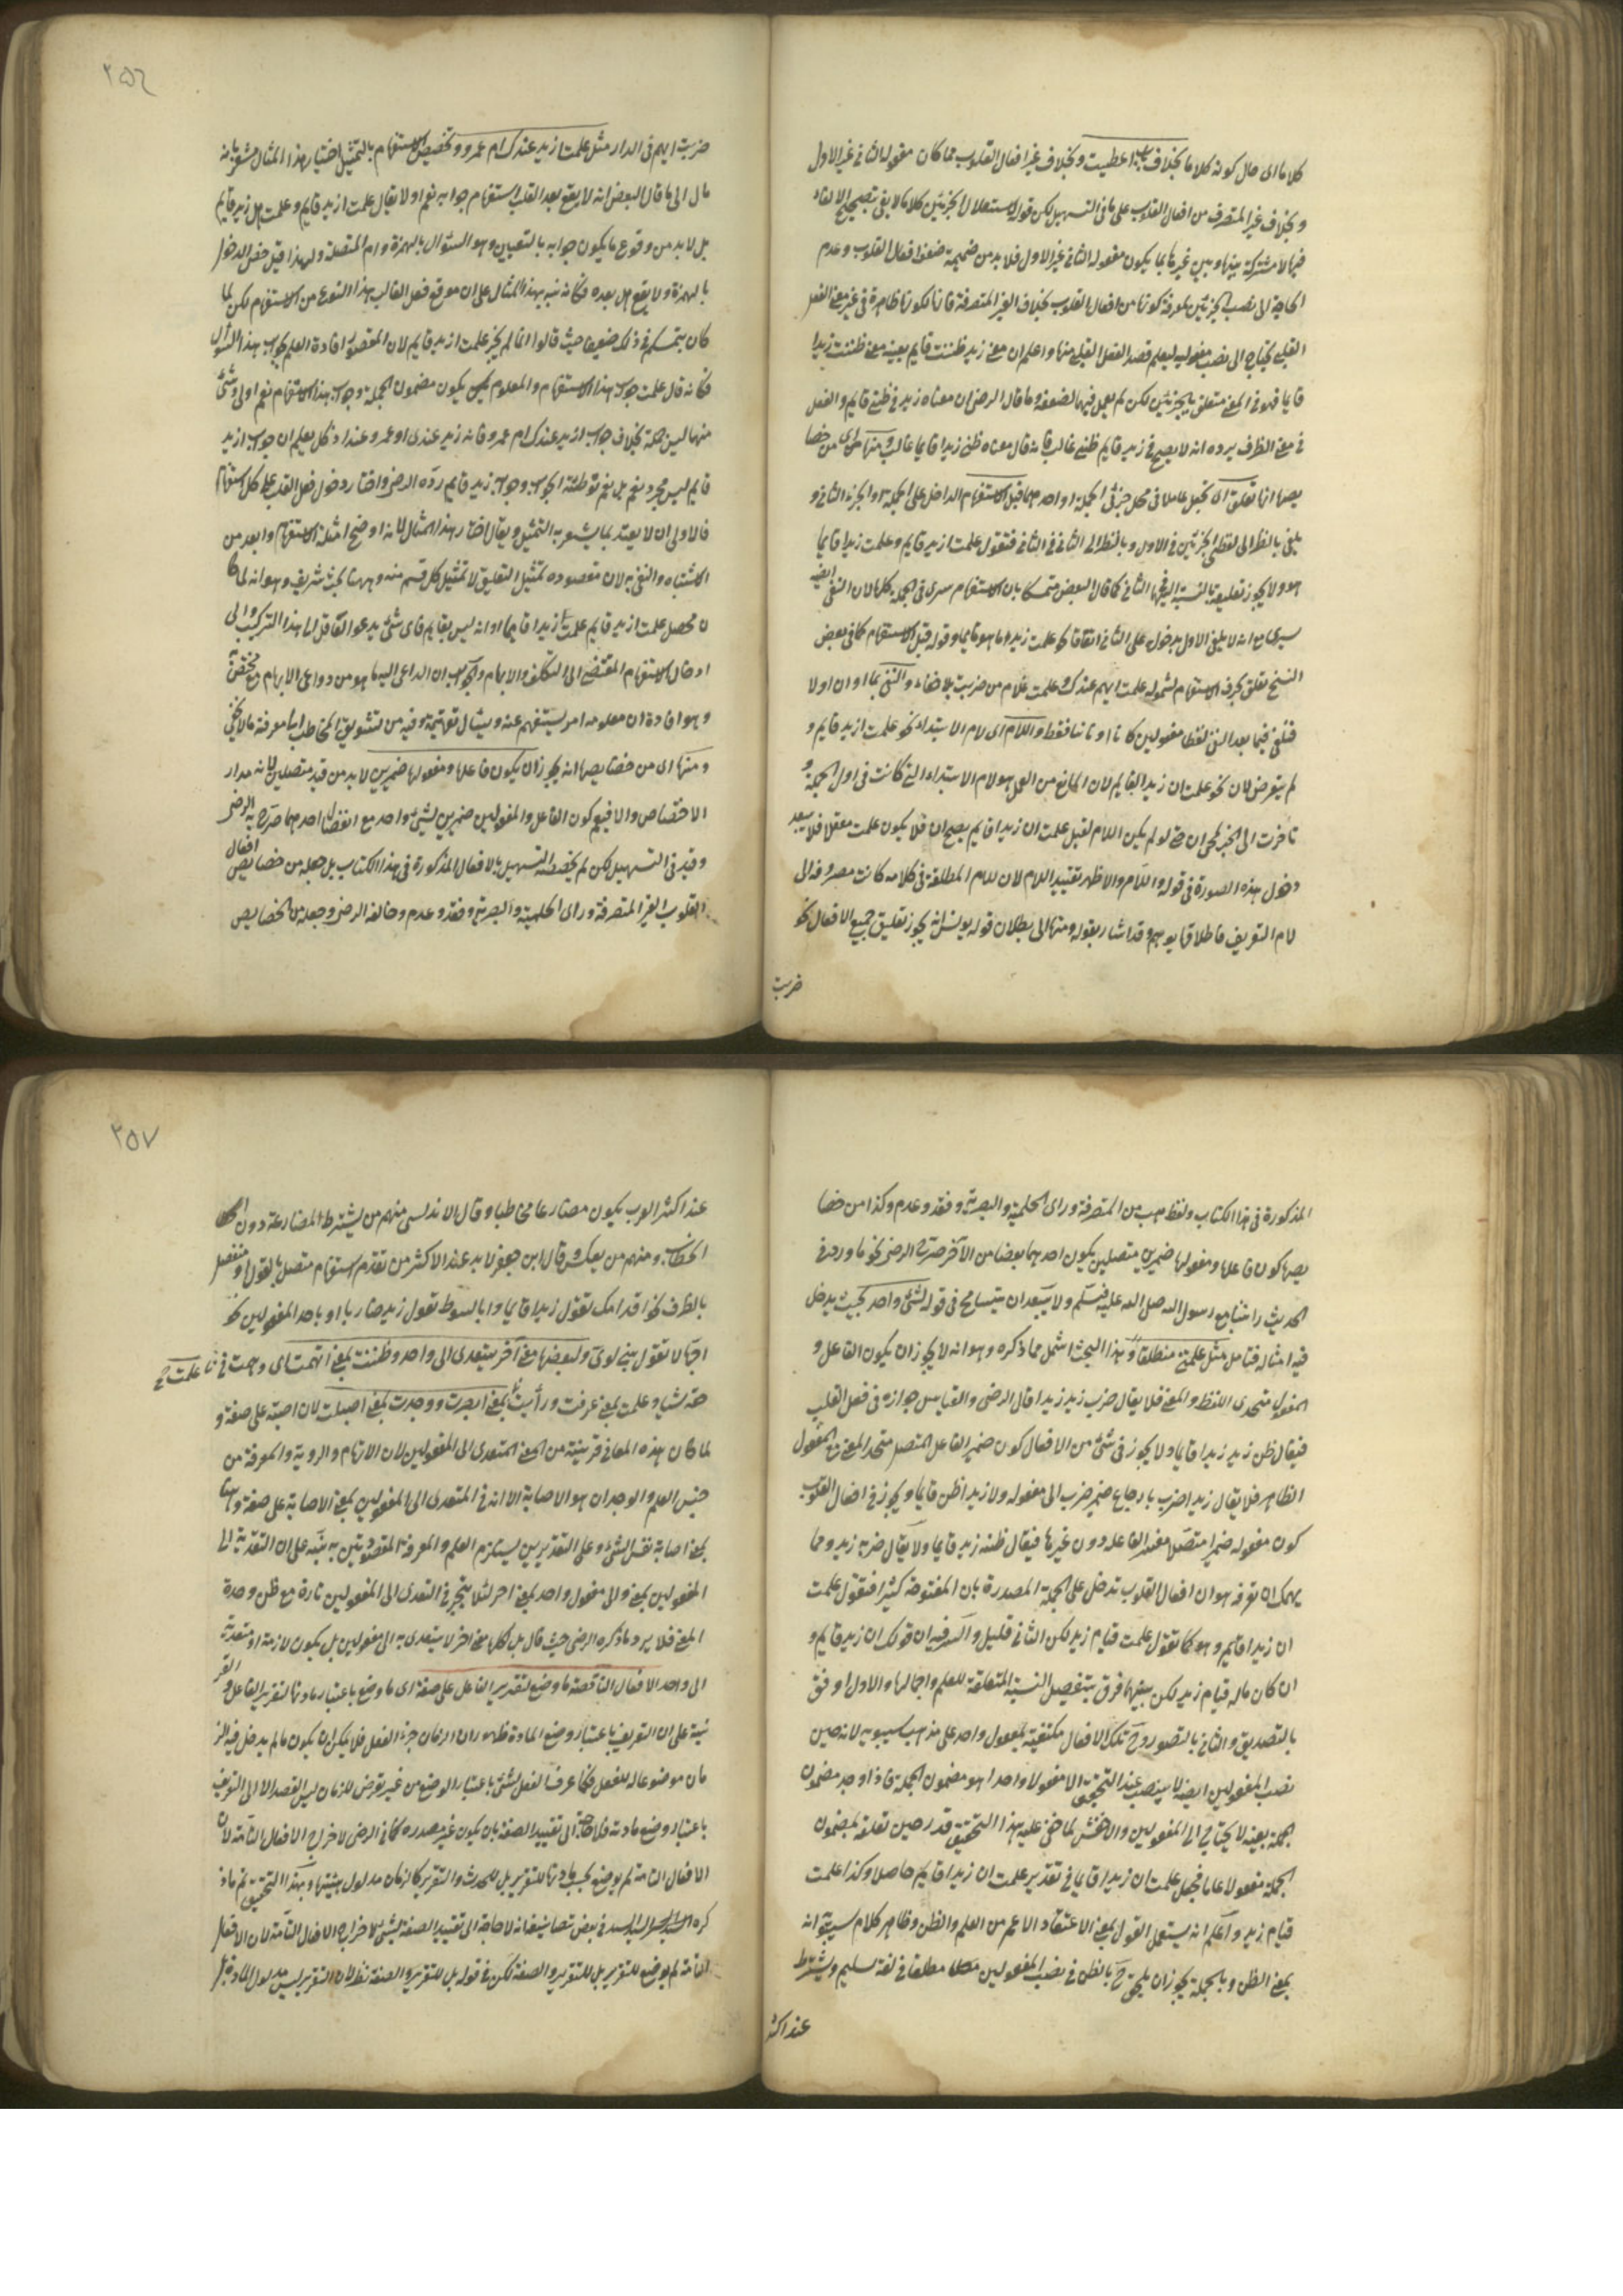 كلاما اى حال كونه كلاما بخلاف باب اعطيت وبخلاف غير افعال القلوب مما كان مفعوله الثانى غير الاول
وبخلاف غير المتصرف من افعال القلوب على ما فى التسهيل لكن قوله لاستقلال الجزئين كلاما لا يفى بتصحيح الالغاء
فيها لا مشتركة بينها وبين غيرها مما يكون مفعوله الثانى غير الاول فلا بد من ضميمة ضعف افعال القلوب وعدم
الحاجة الى نصب الجزئين لمعرفة كونها من افعال القلوب بخلاف الغير المتصرفة فانها لكونها ظاهرة فى غير معنى الفعل
القلبى يحتاج الى نصب مفعوليه ليعلم قصد الفعل القلبى منها واعلم ان معنى زيد ظننت قايم بعينه معنى ظننت زيدا
قايما فهو فى المعنى متعلق بالجزئين لكن لم يعمل فيهما لضعفه وما قال الرضى ان معناه زيد فى ظنى قايم والفعل
فى معنى الظرف يرده انه لا يصح فى زيد قايم ظنى غالب فانه قال معناه ظنى زيدا قايما غالب ومنها اى من خصا
يصها انها تعلق اى تجعل عاملا فى محل جزئى الجملة او احدهما قبل الاستفهام الداخل على الجملة او الجزء الثانى و
يلغى بالنظر الى لفظى الجزئين فى الاول وبالنظر الى الثانى فى الثانى فتقول علمت ازيد قايم وعلمت زيدا قايما
هو ولا يجوز تعليقه بالنسبة الى الثانى كما قال البعض متمسكا بان الاستفهام سرى فى الجملة كلها لان النفى ايضا
سرى مع انه لا يلغى الاول بدخوله على الثانى اتفاقا نحو علمت زيدا ما هو قايما وقوله قبل الاستفهام كما فى بعض
النسخ تعلق بحرف الاستفهام لشموله علمت ايهم عندك وعلمت غلام من ضربت بلا خفاء والنفى بما او ان او لا
فتلغى فيما بعد النفى لفظا مفعولين كانا او ثانيا فقط واللام اى لام الابتداء نحو علمت لزيد قايم و
لم يتعرض لان نحو علمت ان زيدا لقايم لان المانع من العمل هو لام الابتداء التى كانت فى اول الجملة و
تأخرت الى الخبر لمجى ان حتى لو لم يكن اللام لقيل علمت ان زيدا قايم بصح ان فلا يكون علمت معلقا فلا يبعد
دخول هذه الصورة فى قوله واللام والاظهر تقييد اللام لان للام المطلقة فى كلامه كانت مصروفة الى
لام التعريف فاطلاقها يوهم وقد اشار بقوله ومنها الى بطلان قوله يونس انه يجوز تعليق جميع الافعال نحو
ضربت
٢٥٦
ضربت ايهم فى الدار مثل علمت ازيد عندك ام عمرو وتخصيص الاستفهام بالتمثيل اختيار هذا المثال مشعر بانه
مال الى ما قال البعض انه لا يقع بعد القلب استفهام جوابه نعم او لا يقال علمت ازيد قايم وعلمت هل زيد قايم
بل لا بد من وقوع ما يكون جوابه بالتعيين وهو السؤال بالهمزة وام المتصلة ولهذا قيل خص الدخول
بالهمزة ولا يقع هل بعده فكانه نبه بهذا المثال على ان موقع فعل القالب هذا النوع من الاستفهام لكن لما
كان يتمسكهم فى ذلك ضعيفا حيث قالوا انما لم يجز علمت ازيد قايم لان المقصود افادة العلم بجواب هذا السؤال
فكانه قال علمت جواب هذا الاستفهام والمعلوم يكون مضمون الجملة وجواب هذا الاستفهام نعم او لا وشئ
منهما ليس جملة بخلاف جواب ازيد عندك ام عمرو فانه زيد عندى او عمرو عندى اذ كل يعلم ان جواب ازيد
قايم ليس مجرد نعم بل نعم توطئة الجواب وجوابه زيد قايم رده الرضى واختار دخول فعل القلب على كل استفهام
فالاولى ان لا يعتد بما يشعر به التمثيل ويقال اختار هذا المثال لانه اوضح امثلة الاستفهام وابعد من
الاشتباه والنفى به لان مقصوده تمثيل التعليق لا تمثيل كل قسم منه وههنا بحث شريف وهو انه لما كا
ن محصل علمت ازيد قايم علمت زيدا قايما او انه ليس بقايم فاى شئ يدعو العاقل الى هذا التركيب والى
ادخال الاستفهام المقتضى الى التكلف والابهام والجواب ان الداعى اليه ما هو من دواعى الابهام مع محققة
وهو افادة ان معلومه امر يستفهم عنه ويسأل تفهيمه وفيه من تشويق المخاطب الى معرفة ما لا يخفى
ومنها اى من خصايصها انه يجوز ان يكون فاعلها ومفعولها ضميرين لا بد من قيد متصلين لانه مدار
الاختصاص والا فيعم كون الفاعل والمفعولين ضميرين لشئ واحد مع انفصال احدهما صرح به الرضى
وقيد فى التسهيل لكن لم يخصصه التسهيل بالافعال المذكورة فى هذا الكتاب بل جعله من خصايص افعال
القلوب الغير المتصرفة وراى الحلمية والبصرية وفقد وعدم وخالفه الرضى وجعله من خصايص
المذكورة فى هذا الكتاب ولفظ هب من المتصرفة وراى الحلمية والبصرية وفقد وعدم وكذا من خصا
يصها كون فاعلها ومفعولها ضميرين متصلين يكون احدهما بعضا من الآخر صرح به الرضى نحو ما ورد فى
الحديث راتنا مع رسول الله صلى الله عليه وسلم ولا يبعد ان يتسامح فى قوله لشئ واحد بحيث يدخل
فيه امثاله فتأمل مثل علمتنى منطلقا وهذا البحث اشمل مما ذكره وهو انه لا يجوز ان يكون الفاعل و
المفعول متحدى اللفظ والمعنى فلا يقال ضرب زيد زيدا قال الرضى والقياس جوازه فى فعل القلب
فيقال ظن زيد زيدا قايما ولا يجوز فى شئ من الافعال كون ضمير الفاعل المتصل متحد المعنى مع المفعول
الظاهر فلا يقال زيدا ضرب بارجاع ضمير ضرب الى مفعوله ولا زيدا ظن قايما ويجوز فى افعال القلوب
كون مفعوله ضميرا متصلا مفسر الفاعل دون غيرها فيقال ظنه زيد قايما ولا يقال ضربه زيد ومما
يهمك ان تعرفه هو ان افعال القلوب تدخل على الجملة المصدرة بان المفتوحة كثيرا فتقول علمت
ان زيدا قايم وهو كما تقول علمت قيام زيد لكن الثانى قليل والسر فيه ان قولك ان زيدا قايم و
ان كان مآله قيام زيد لكن بينهما فرق بتفصيل النسبة المتعلقة للعلم واجمالها والاول اوفق
بالتصديق والثانى بالتصور وح تلك الافعال مكتفية بمفعول واحد على مذهب سيبويه لانه حين
نصب المفعولين ايضا لا ينصب عند التحقيق الا مفعولا واحدا هو مضمون الجملة فاذا وجد مضمون
الجملة بعينه لا يحتاج الى المفعولين والاخفش لما خفى عليه هذا التحقيق قدر حين تعلقه بمضمون
الجملة مفعولا عاما فجعل علمت ان زيدا قايما فى تقدير علمت ان زيدا قايم حاصلا وكذا علمت
قيام زيد واعلم انه يستعمل القول بمعنى الاعتقاد الاعم من العلم والظن وظاهر كلام سيبويه انه
بمعنى الظن وبالجملة يجوز ان يلحق ح بالظن فى نصب المفعولين مطلقا فى لغة سليم ويشترط
عند اكثر
٢٥٧
عند اكثر العرب يكون مضارعا مخاطبا وقال الاندلسى منهم من يشترط المضارعة دون
الخطاب ومنهم من يعكس وقال ابن جعفر لا بد عند الاكثر من تقدم استفهام متصل بالقول او منفصل
بالظرف نحو اقدامك تقول زيدا قايما وابالسوط تقول زيدا ضاربا او باحد المفعولين نحو
اجهالا تقول بنى لوى ولبعضها معنى آخر يتعدى الى واحد وظننت بمعنى اتهمت اى وهمت فى
حقه شيا وعلمت بمعنى عرفت ورأيت بمعنى ابصرت ووجدت بمعنى اصبت لان اصبته على صفة و
لما كان هذه المعانى قريبة من المعنى المتعدى الى المفعولين لان الاتهام والروية والمعرفة من
جنس العلم والوجدان هو الاصابة الا انه فى المتعدى الى المفعولين بمعنى الاصابة على صفة وههنا
بمعنى اصابة نفس الشئ وعلى التقديرين يستلزم العلم والمعرفة المقصودتين به نبه على ان التعدية الى
المفعولين بمعنى والى مفعول واحد بمعنى آخر لئلا يتجرى فى التعدى الى المفعولين تارة مع ظن وحدة
المعنى فلا يرد ما ذكره الرضى حيث قال بل لكلها معنى اخر لا يتعدى به الى مفعولين بل يكون لازمة او متعدية
الى واحد الافعال الناقصة ما وضع لتقرير الفاعل على صفة اى ما وضع باعتبار مادتها لتقرير الفاعل والقر
نية على ان التعريف باعتبار وضع المادة ظهور ان الزمان جزء الفعل فلا يمكن ان يكون ما لم يدخل فيه الز
مان موضوعا له للفعل فكلما عرف الفعل لشئ باعتبار الوضع من غير تعرض للزمان ليس القصد الا الى التعريف
باعتبار وضع مادته فلا حاجة الى تقييد الصفة بان يكون غير مصدره كما فى الرضى لاخراج الافعال التامة لان
الافعال التامة لم يوضع بحسب مادتها للتقرير بل للحدث والتقرير كالزمان مدلول هيئتها وبهذا التحقيق تم ما ذ
كره السيد السند فى بعض تصانيفه انه لا حاجة الى تقييد الصفة بشئ لاخراج الافعال التامة لان الافعال
التامة لم يوضع للتقرير بل للتقرير والصفة لكن فى قوله بل للتقرير والصفة نظر لان التقرير ليس مدلول المادة بل